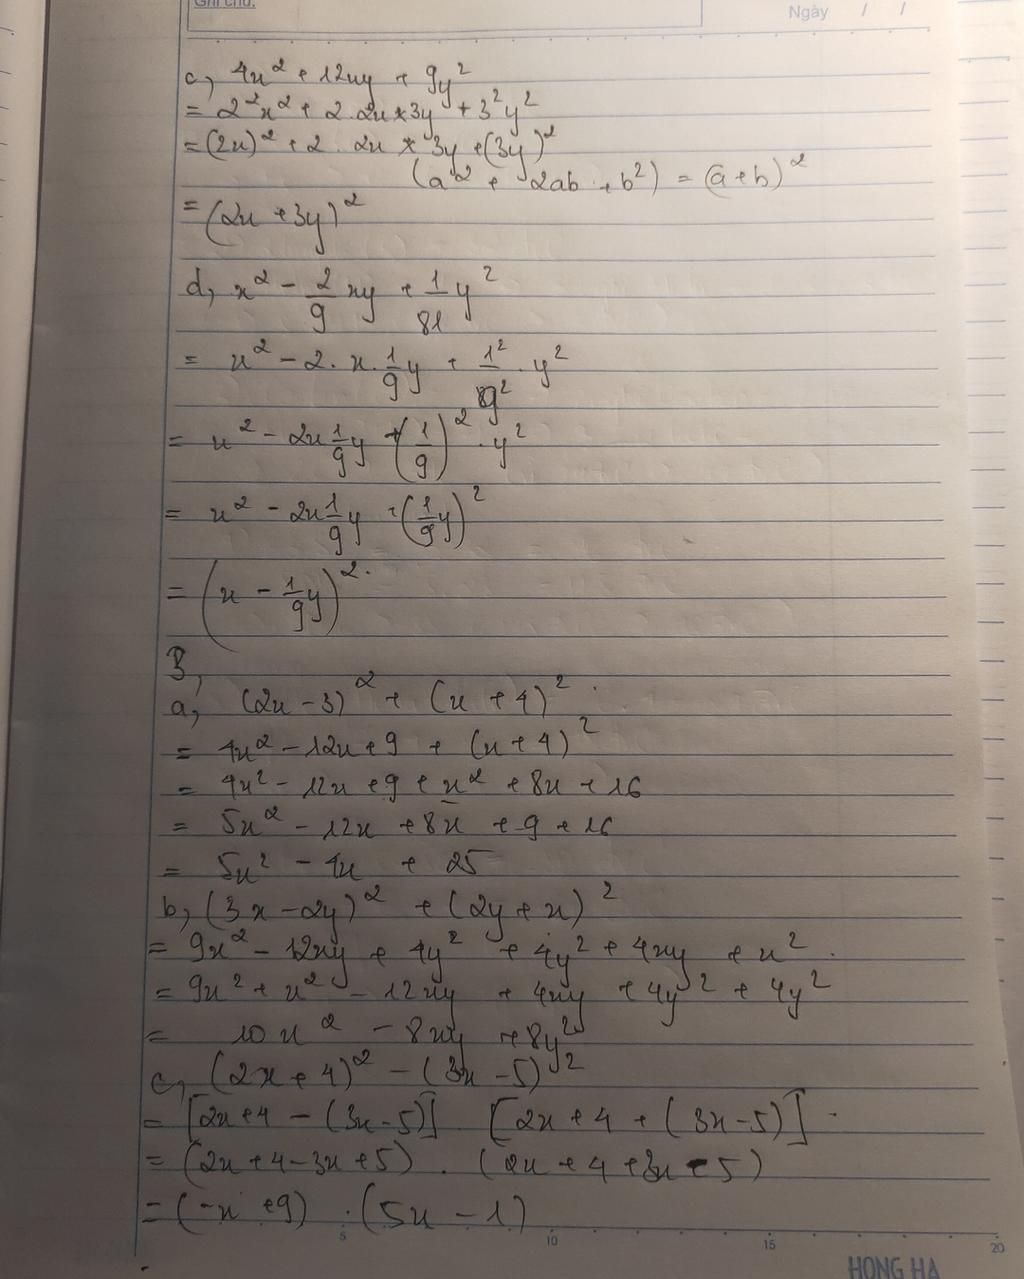 Ghi chú:
Ngày / /
c, 4x² + 12xy + 9y²
= 2²x² + 2.2x*3y + 3²y²
= (2x)² + 2.2x * 3y + (3y)²
(a² + 2ab + b²) = (a+b)²
= (2x + 3y)²
d, x² - 2/9 xy + 1/81 y²
= x² - 2.x.1/9 y + 1²/9² . y²
= x² - 2x 1/9 y + (1/9)² . y²
= x² - 2x 1/9 y + (1/9 y)²
= (x - 1/9 y)².
3,
a, (2x - 3)² + (x + 4)²
= 4x² - 12x + 9 + (x + 4)²
= 4x² - 12x + 9 + x² + 8x + 16
= 5x² - 12x + 8x + 9 + 16
= 5x² - 4x + 25
b, (3x - 2y)² + (2y + x)²
= 9x² - 12xy + 4y² + 4y² + 4xy + x².
= 9x² + x² - 12xy + 4xy + 4y² + 4y²
= 10x² - 8xy + 8y²
c, (2x + 4)² - (3x - 5)²
= [2x + 4 - (3x - 5)] . [2x + 4 + (3x - 5)].
= (2x + 4 - 3x + 5) . (2x + 4 + 3x - 5)
= (-x + 9) . (5x - 1)
5 10 15 20
HONG HA